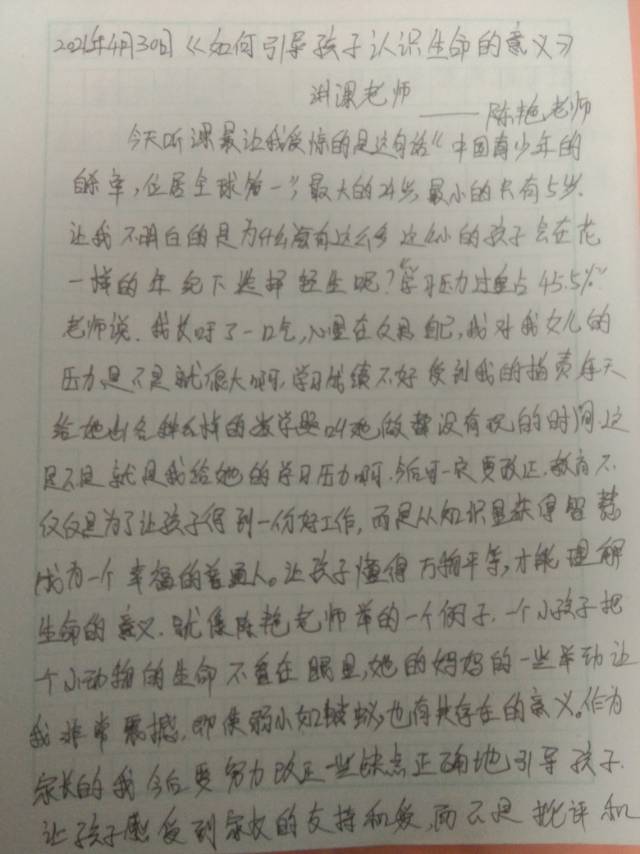 2021年4月30日《如何引导孩子认识生命的意义》
讲课老师
——陈艳老师
今天听课最让我受惊的是这句话“中国青少年的
自杀率,位居全球第一”,最大的24岁,最小的只有5岁.
让我不明白的是为什么会有这么多这么小的孩子会在花
一样的年纪下选择轻生呢?“学习压力过重占45.5%”
老师说.我长呼了一口气,心里在反思自己,我对我女儿的
压力是不是就很大啊,学习成绩不好受到我的指责每天
给她出各种各样的数学题叫她做都没有玩的时间.这
是不是就是我给她的学习压力啊.今后可一定要改正.教育不
仅仅是为了让孩子得到一份好工作,而是从知识里获得智慧
成为一个幸福的普通人。让孩子懂得万物平等,才能理解
生命的意义.就像陈艳老师举的一个例子.一个小孩子把
个小动物的生命不看在眼里,她的妈妈的一些举动让
我非常震撼.即使弱小如蝼蚁,也有其存在的意义。作为
家长的我今后要努力改正一些缺点正确地引导孩子.
让孩子感受到家长的支持和爱,而不是批评和